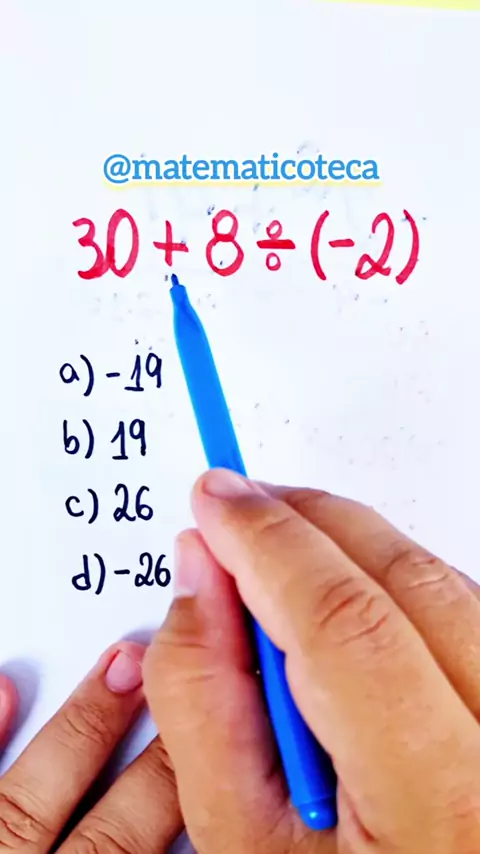 @matematicoteca
30 + 8 ÷ (-2)
a) -19
b) 19
c) 26
d) -26